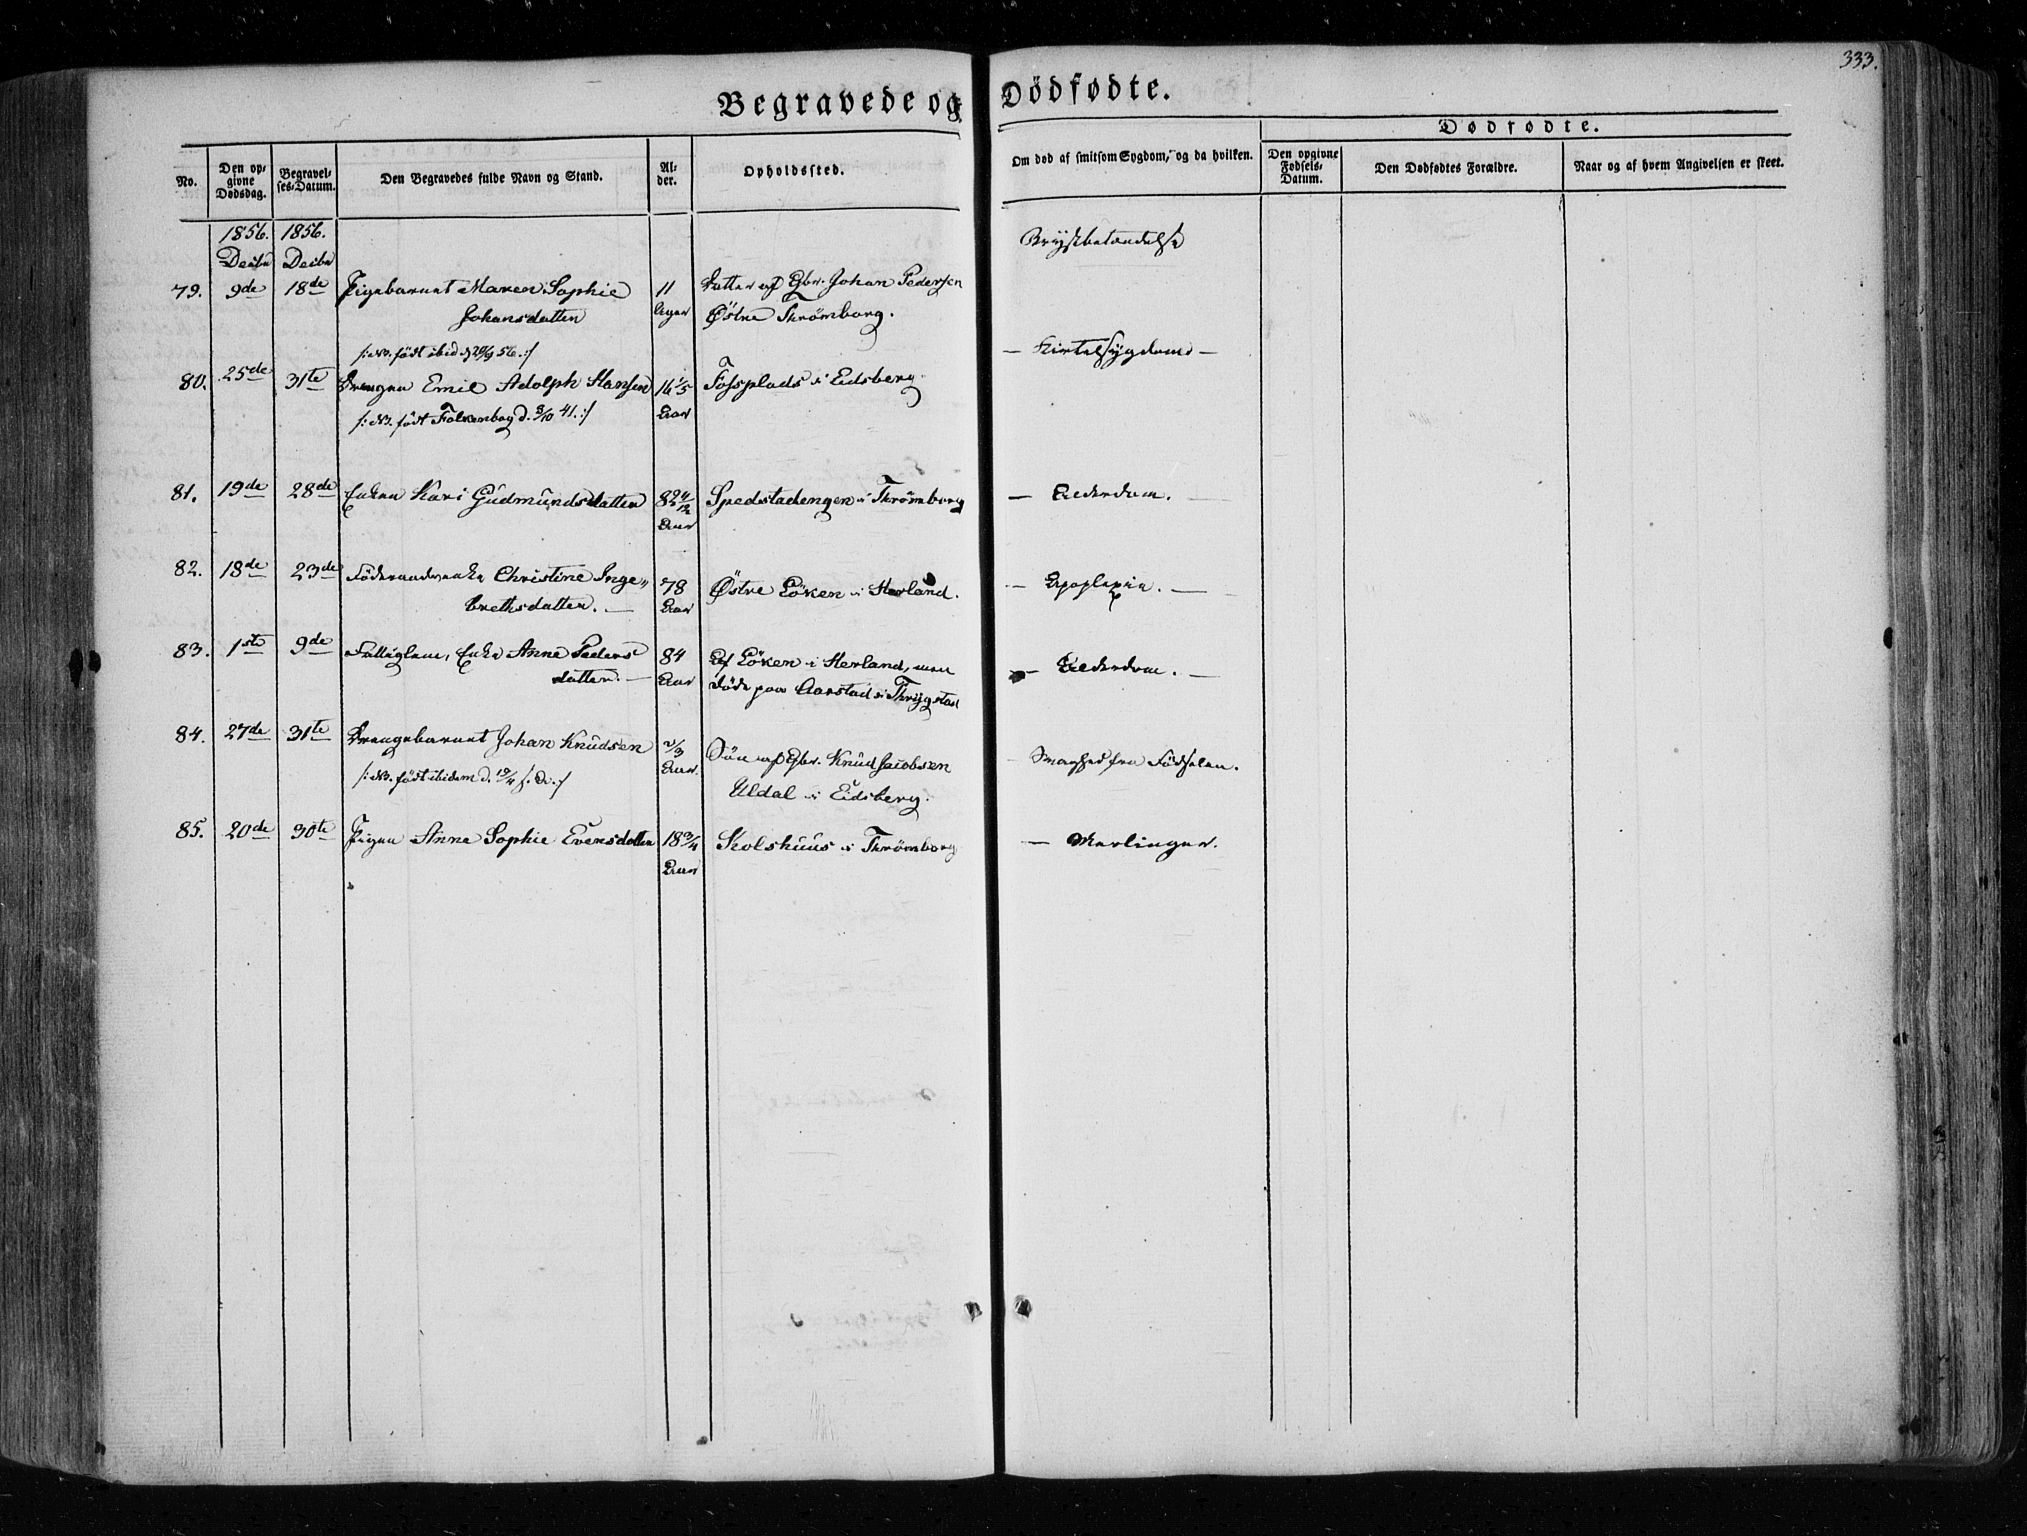 333.
Begravede og Dødfødte.
Dødfødte.
No.
Den op-
givne
Dødsdag.
Begravel-
ses-Datum.
Den Begravedes fulde Navn og Stand.
Al-
der.
Opholdssted.
Om død af smitsom Sygdom, og da hvilken.
Den opgivne
Fødsels-
Datum.
Den Dødfødtes Forældre.
Naar og af hvem Angivelsen er skeet.
1856. 1856.
Decbr Decbr
79. 9de 18de Pigebarnet Maren Sophie 11 Datter af Gbr. Johan Pedersen Brystbetændelse
Johansdatter Uger Østre Thrømborg.
/: NB. født ibid 56. :/
80. 25de 31te Drengen Emil Adolph Hansen 16 1/5 Fossplads i Eidsberg. — Kirtelsygdom —
/: NB. født Falkenborg d. 3/10 41. :/ Aar
81. 19de 28de Enken Kari Gudmundsdatter 82 11/12 Spedstadengen i Thrømborg — Alderdom. —
Aar
82. 18de 23de Föderaadsenke Christine Inge- 78 Østre Löken i Herland. — Apoplexie. —
brethsdatter. — Aar
83. 1ste 9de Fattiglem, Enke Anne Peders 84 Af Löken i Herland, men — Alderdom. —
datter. — Aar døde paa Aarstad i Thrygstad
84. 27de 31te Drengebarnet Johan Knudsen 2/3 Søn af Gbr. Knud Jacobsen — Svaghed fra Fødselen.
/: NB. født ibidem d. 19/4 :/ Aar. Uldal i Eidsberg.
85. 20de 30te Pigen Anne Sophie Evensdatter 18 3/4 Skolshuus i Thrømborg — Meslinger.
Aar